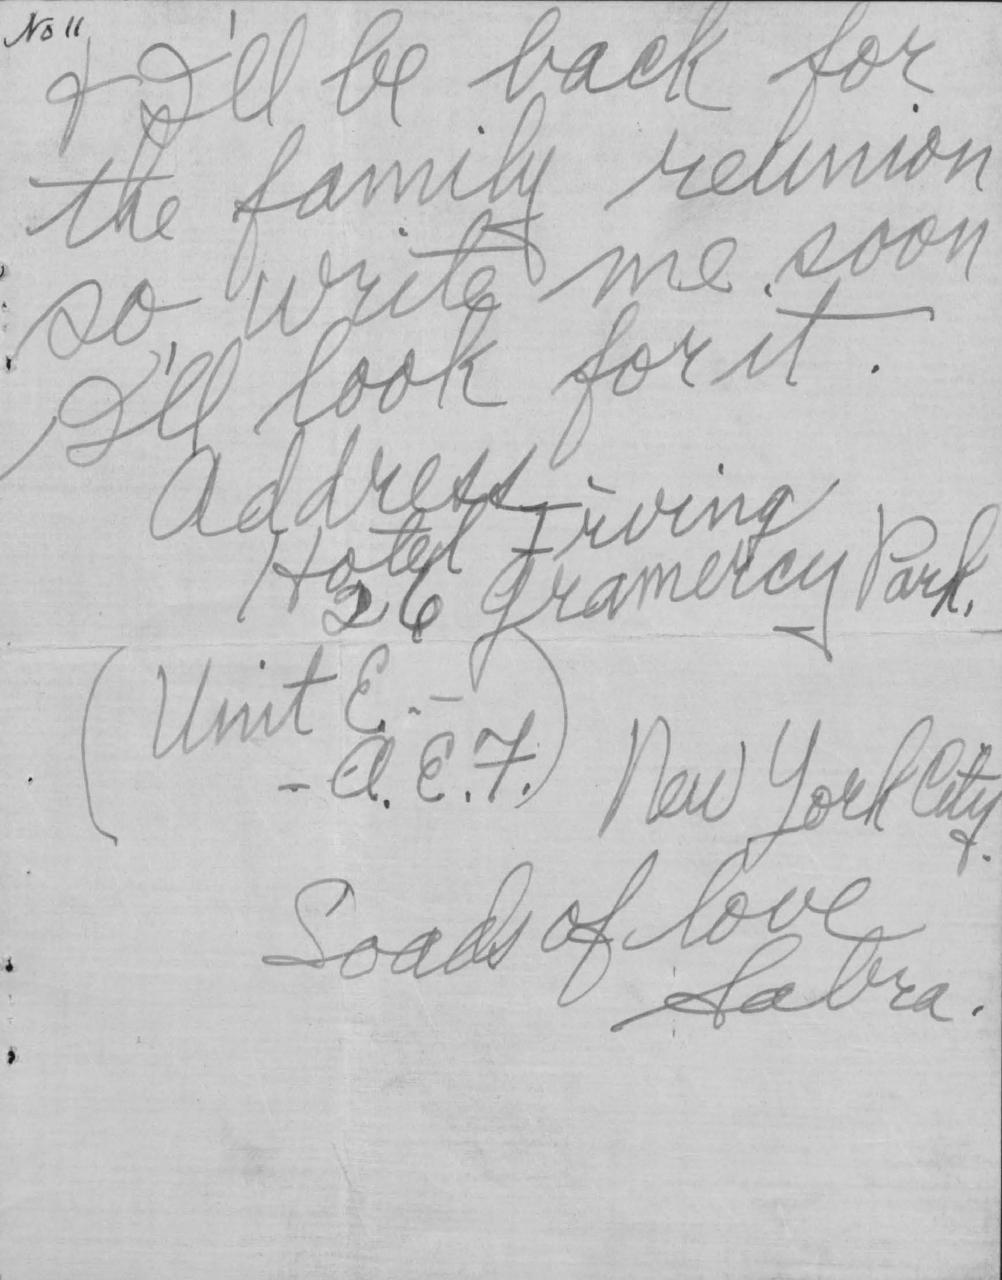 No 11
& I'll be back for
the family reunion
so write me soon
I'll look for it.
Address
Hotel Irving
26 Gramercy Park.
(Unit E. -
- A. E. F.)
New York City.
Loads of love
Sabra.